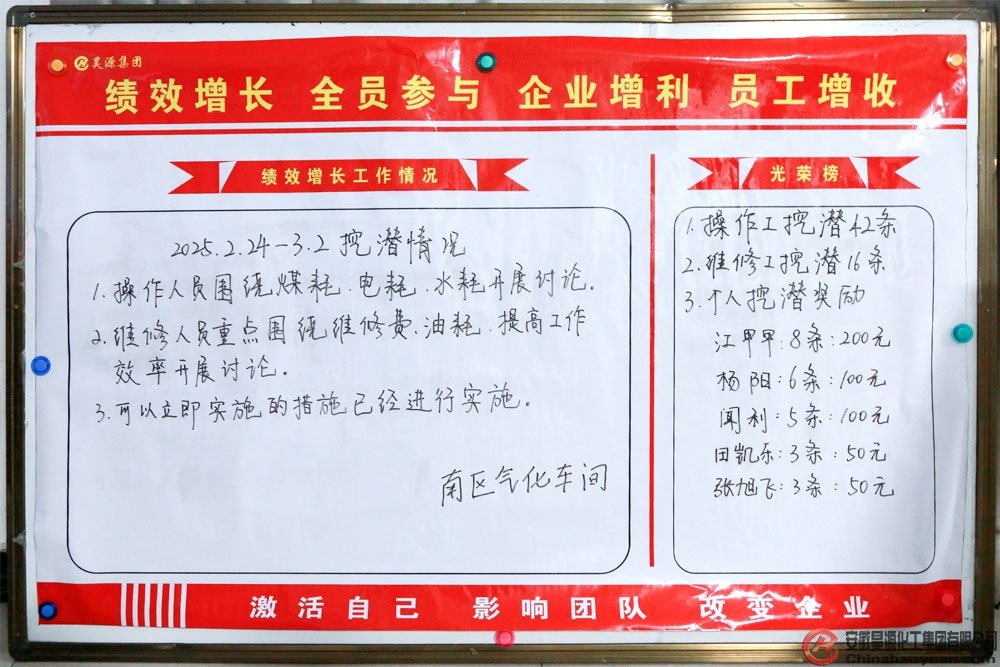 昊源集团
绩效增长 全员参与 企业增利 员工增收
绩效增长工作情况
2025.2.24-3.2挖潜情况
1.操作人员围绕煤耗、电耗、水耗开展讨论.
2.维修人员重点围绕维修费、油耗、提高工作
效率开展讨论。
3.可以立即实施的措施已经进行实施。
南区气化车间
光荣榜
1.操作工挖潜42条
2.维修工挖潜16条
3.个人挖潜奖励
江甲甲:8条:200元
杨阳:6条:100元
闻利:5条:100元
田凯乐:3条:50元
张旭飞:3条:50元
激活自己 影响团队 改变企业
安徽昊源化工集团有限公司